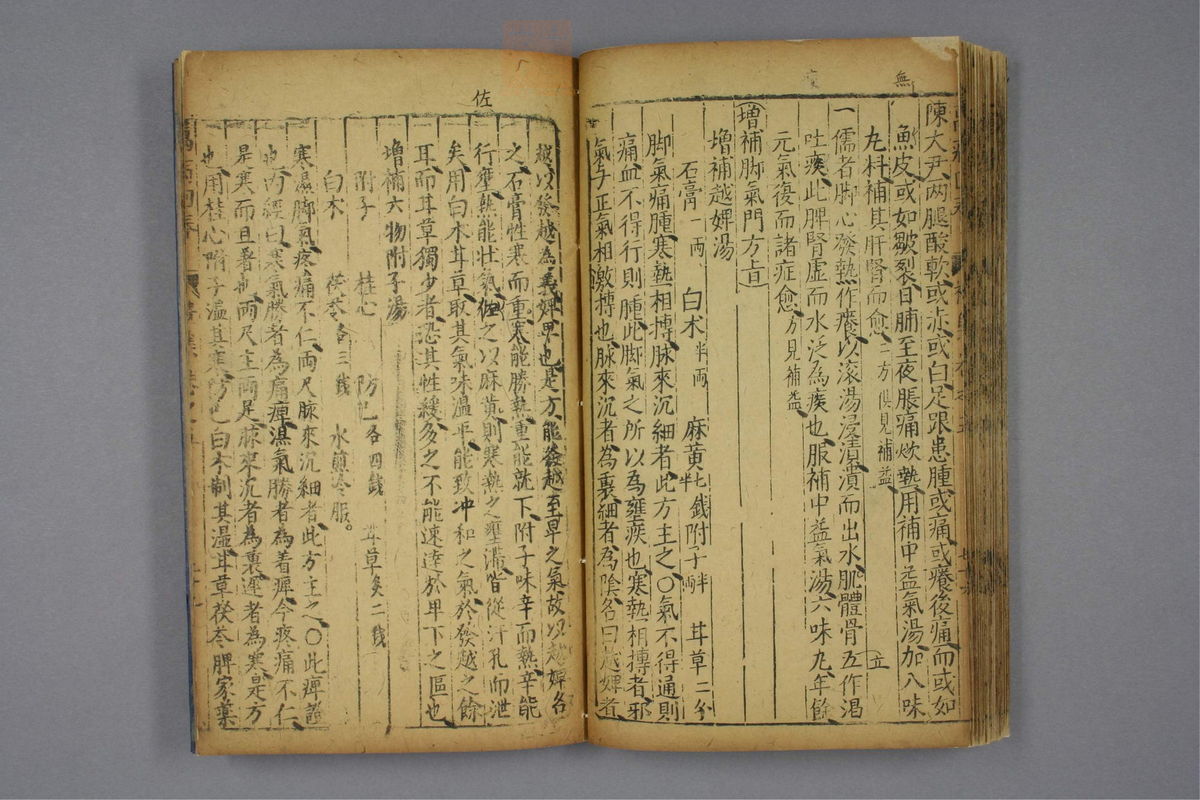 無
陳大尹両腿酸軟或赤或白足跟患腫或痛或癢後痛而或如
魚皮或如皺裂日晡至夜脹痛焮熱用補中益氣湯加八味
丸料補其肝腎而愈二方俱見補益
立
一儒者脚心發熱作癢以滚湯浸漬潰而出水肌體骨立作渇
吐痰此脾腎虛而水泛為痰也服補中益氣湯六味丸年餘
元氣復而諸症愈方見補益
増補脚氣門方
増補越婢湯
石膏一両 白术半両 麻黄七銭半 附子半両 甘草二分
脚氣痛腫寒熱相搏脉來沉細者此方主之〇氣不得通則
痛血不得行則腫此脚氣之所以為壅疾也寒熱相搏者邪
氣与正氣相激搏也脉來沉者為裏細者為陰名曰越婢者
佐
越以發越為義婢卑也是方能發越至卑之氣故以越婢名
之石膏性寒而重寒能勝熱重能就下附子味辛而熱辛能
行壅熱能壮氣佐之以麻黄則寒熱之壅滯皆從汗孔而泄
矣用白术甘草取其氣味温平能致冲和之氣於發越之餘
耳而甘草獨少者恐其性緩多之不能速達於卑下之區也
増補六物附子湯
附子 桂心 防己各四銭 甘草炙二銭
白术 茯苓各三銭 水煎冷服
寒濕脚氣疼痛不仁両尺脉來沉細者此方主之〇此痺證
也内經曰寒氣勝者為痛痺濕氣勝者為着痺今疼痛不仁
是寒而且着也両尺主両足脉來沉者為裏遲者為寒是方
也用桂心附子温其寒防己白术制其濕甘草茯苓脾家藥